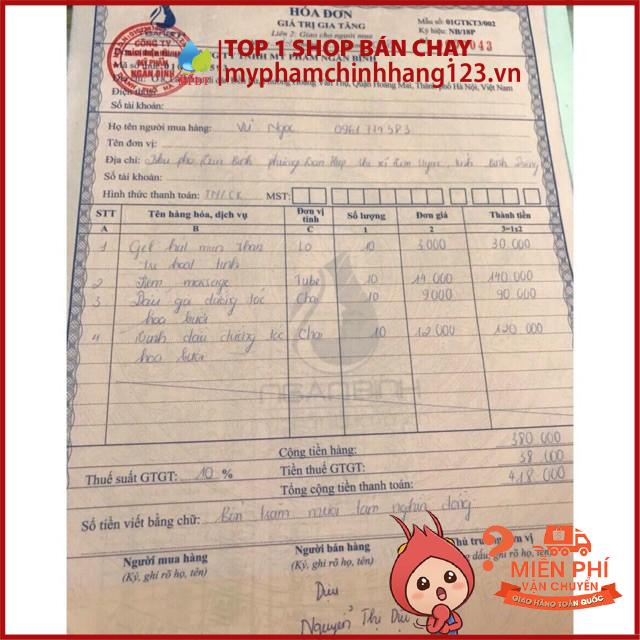 HÓA ĐƠN
GIÁ TRỊ GIA TĂNG
Liên 2: Giao cho người mua
Mẫu số: 01GTKT3/002
Ký hiệu: NB/18P
043
TOP 1 SHOP BÁN CHẠY
myphamchinhhang123.vn
CÔNG TY
MỸ PHẨM
NGÂN BÌNH
MỸ PHẨM NGÂN BÌNH
Quận Hoàng Mai, Thành phố Hà Nội, Việt Nam
Điện thoại:
Số tài khoản:
Họ tên người mua hàng: Vũ Ngọc 0961779583
Tên đơn vị:
Địa chỉ:
Số tài khoản:
Hình thức thanh toán: TM/CK MST:
STT Tên hàng hóa, dịch vụ Đơn vị tính Số lượng Đơn giá Thành tiền
A B C 1 2 3=1x2
1 Gel hút mụn than Lọ 10 3.000 30 000
tre hoạt tính
2 massage Tube 10 14.000 140.000
3 Dầu gội dưỡng tóc Chai 10 9000 90 000
hoa bưởi
4 dầu dưỡng tóc Chai 10 12.000 120 000
hoa bưởi
NGÂN BÌNH
Cộng tiền hàng: 380 000
Thuế suất GTGT: 10 % Tiền thuế GTGT: 38 000
Tổng cộng tiền thanh toán: 418 000
Số tiền viết bằng chữ: Bốn trăm mười tám nghìn đồng
Người mua hàng Người bán hàng Thủ trưởng đơn vị
(Ký, ghi rõ họ, tên) (Ký, ghi rõ họ, tên) dấu, ghi rõ họ, tên)
Dịu
Nguyễn Thị Dịu
MIỄN PHÍ
VẬN CHUYỂN
GIAO HÀNG TOÀN QUỐC